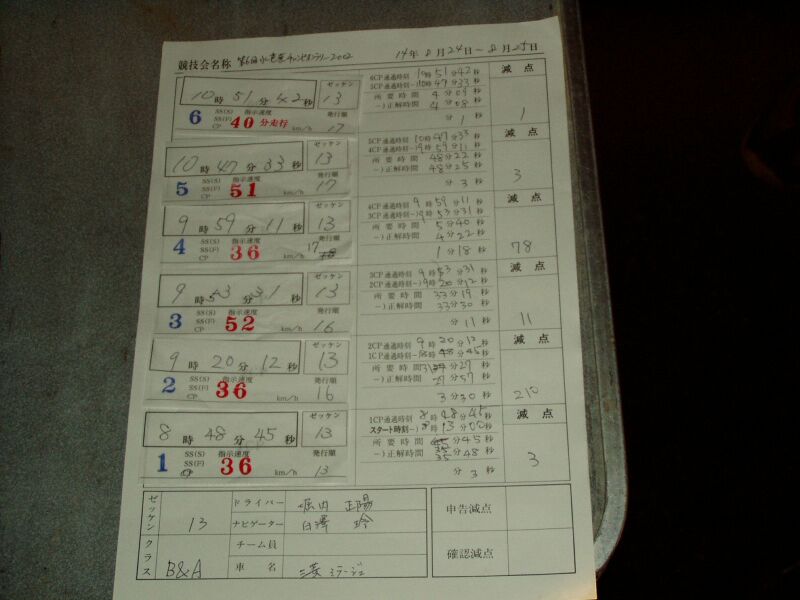 競技会名称 14年8月24日～8月25日
10時51分42秒 ゼッケン 13
6 SS(S) SS(F) CP 指示速度 40分走行 km/h 発行順 17
6CP通過時刻 10時51分42秒 減点
5CP通過時刻 －)10時47分33秒
所要時間 4分09秒
－)正解時間 4分08秒
分1秒 1
10時47分33秒 ゼッケン 13
5 SS(S) SS(F) CP 指示速度 51 km/h 発行順 17
5CP通過時刻 10時47分33秒 減点
4CP通過時刻 －)9時59分11秒
所要時間 48分22秒
－)正解時間 48分25秒
分3秒 3
9時59分11秒 ゼッケン 13
4 SS(S) SS(F) CP 指示速度 36 km/h 発行順 17
4CP通過時刻 9時59分11秒 減点
3CP通過時刻 －)9時53分31秒
所要時間 5分40秒
－)正解時間 4分22秒
1分18秒 78
9時53分31秒 ゼッケン 13
3 SS(S) SS(F) CP 指示速度 52 km/h 発行順 16
3CP通過時刻 9時53分31秒 減点
2CP通過時刻 －)9時20分12秒
所要時間 33分19秒
－)正解時間 33分30秒
分11秒 11
9時20分12秒 ゼッケン 13
2 SS(S) SS(F) CP 指示速度 36 km/h 発行順 16
2CP通過時刻 9時20分12秒 減点
1CP通過時刻 －)8時48分45秒
所要時間 31分27秒
－)正解時間 27分57秒
3分30秒 210
8時48分45秒 ゼッケン 13
1 SS(S) SS(F) CP 指示速度 36 km/h 発行順 13
1CP通過時刻 8時48分45秒 減点
スタート時刻 －)8時13分00秒
所要時間 35分45秒
－)正解時間 35分48秒
分3秒 3
ゼッケン 13 ドライバー 堀内 正陽 申告減点
ナビゲーター 白澤 玲
クラス B&A チーム員 確認減点
車名 三菱 ミラージュ